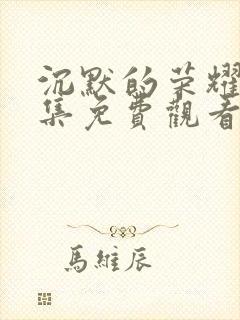 沉默的荣耀
集免費觀看
馬維辰